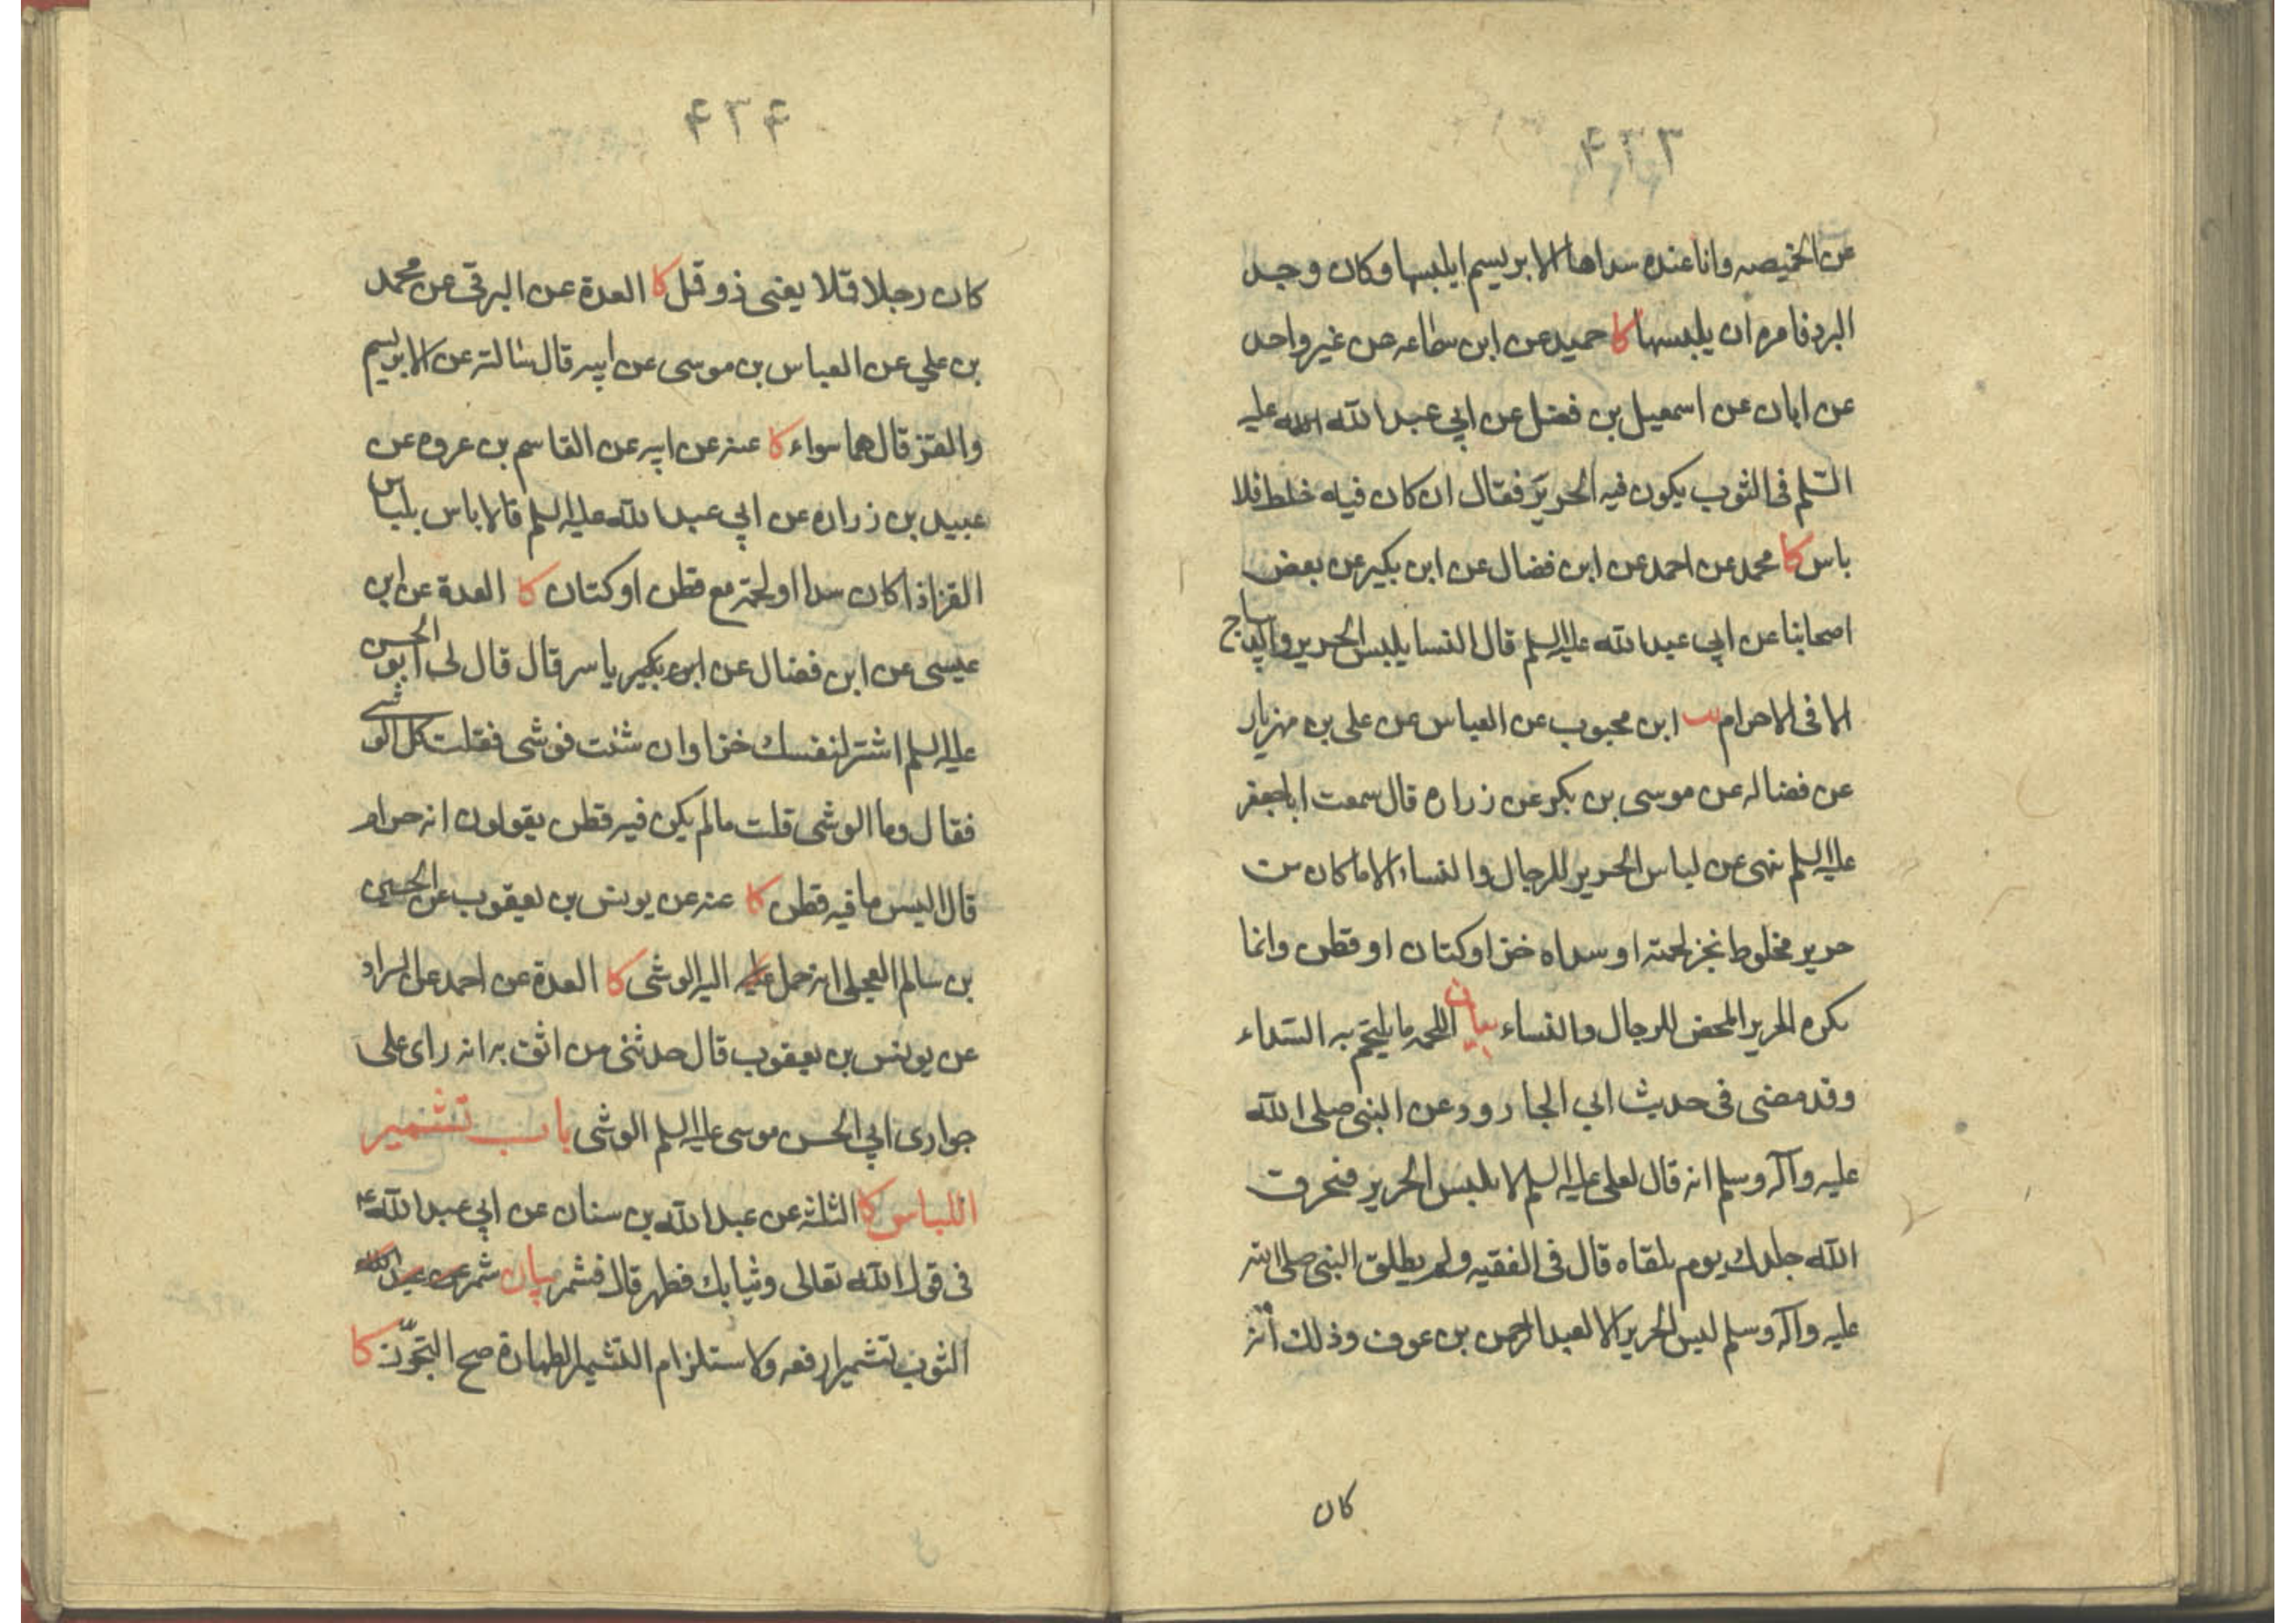 ۴۳۳
عن الخميصه وانا عنده سداها الابريسم ايلبسها وكان وجد
البرد فامره ان يلبسها كا حميد عن ابن سماعه عن غير واحد
عن ابان عن اسمعيل بن فضل عن ابي عبد الله عليه
السّلم فى الثوب يكون فيه الحرير فقال ان كان فيه خلط فلا
باس كا محمد عن احمد عن ابن فضال عن ابن بكير عن بعض
اصحابنا عن ابي عبد الله عليه السلم قال النسا يلبس الحرير والديباج
الا فى الاحرام يب ابن محبوب عن العباس عن على بن مهزيار
عن فضاله عن موسى بن بكر عن زراره قال سمعت ابا جعفر
عليه السلم ينهى عن لباس الحرير للرجال والنساء الا ما كان من
حرير مخلوط بخز لحمته او سداه خز او كتان او قطن وانما
يكره الحرير المحض للرجال والنساء بيان اللحمه ما يلتحم به السّداء
وقد مضى فى حديث ابي الجارود عن النبى صلى الله
عليه وآله وسلم انه قال لعلى عليه السلم لا تلبس الحرير فيحرق
الله جلدك يوم يلقاه قال فى الفقيه ولم يطلق النبى صلى الله
عليه وآله وسلم لبس الحرير الا لعبد الرحمن بن عوف وذلك أنّه
كان
۴۳۴
كان رجلا قلا يعنى ذو قل كا العدة عن البرقى عن محمد
بن علي عن العباس بن موسى عن ابيه قال سالته عن الابريسم
والقز قال هما سواء كا عنه عن ابيه عن القاسم بن عروه عن
عبيد بن زراره عن ابي عبد الله عليه السلم قال لا باس بلباس
القز اذا كان سداه او لحمته مع قطن او كتان كا العدة عن ابن
عيسى عن ابن فضال عن ابن بكير ياسر قال قال لى ابو الحسن
عليه السلم اشتر لنفسك خزا وان شئت فوشى فقلت كل الوشى
فقال وما الوشى قلت ما لم يكن فيه قطن يقولون انه حرام
قال البس ما فيه قطن كا عنه عن يونس بن يعقوب عن الحسين
بن سالم العجلى انه حمل عليه اليه الوشى كا العدة عن احمد عن السراد
عن يونس بن يعقوب قال حدثنى من اثق به انه راى على
جوارى ابي الحسن موسى عليه السلم الوشى باب تشمير
اللباس كا الثلثه عن عبد الله بن سنان عن ابي عبد الله ع
فى قول الله تعالى وثيابك فطهر قال فشمر بيان شمر عن عبد الله
الثوب تشميرا رفعه ولاستلزام التشمير الطهارة صح التجوّز كا